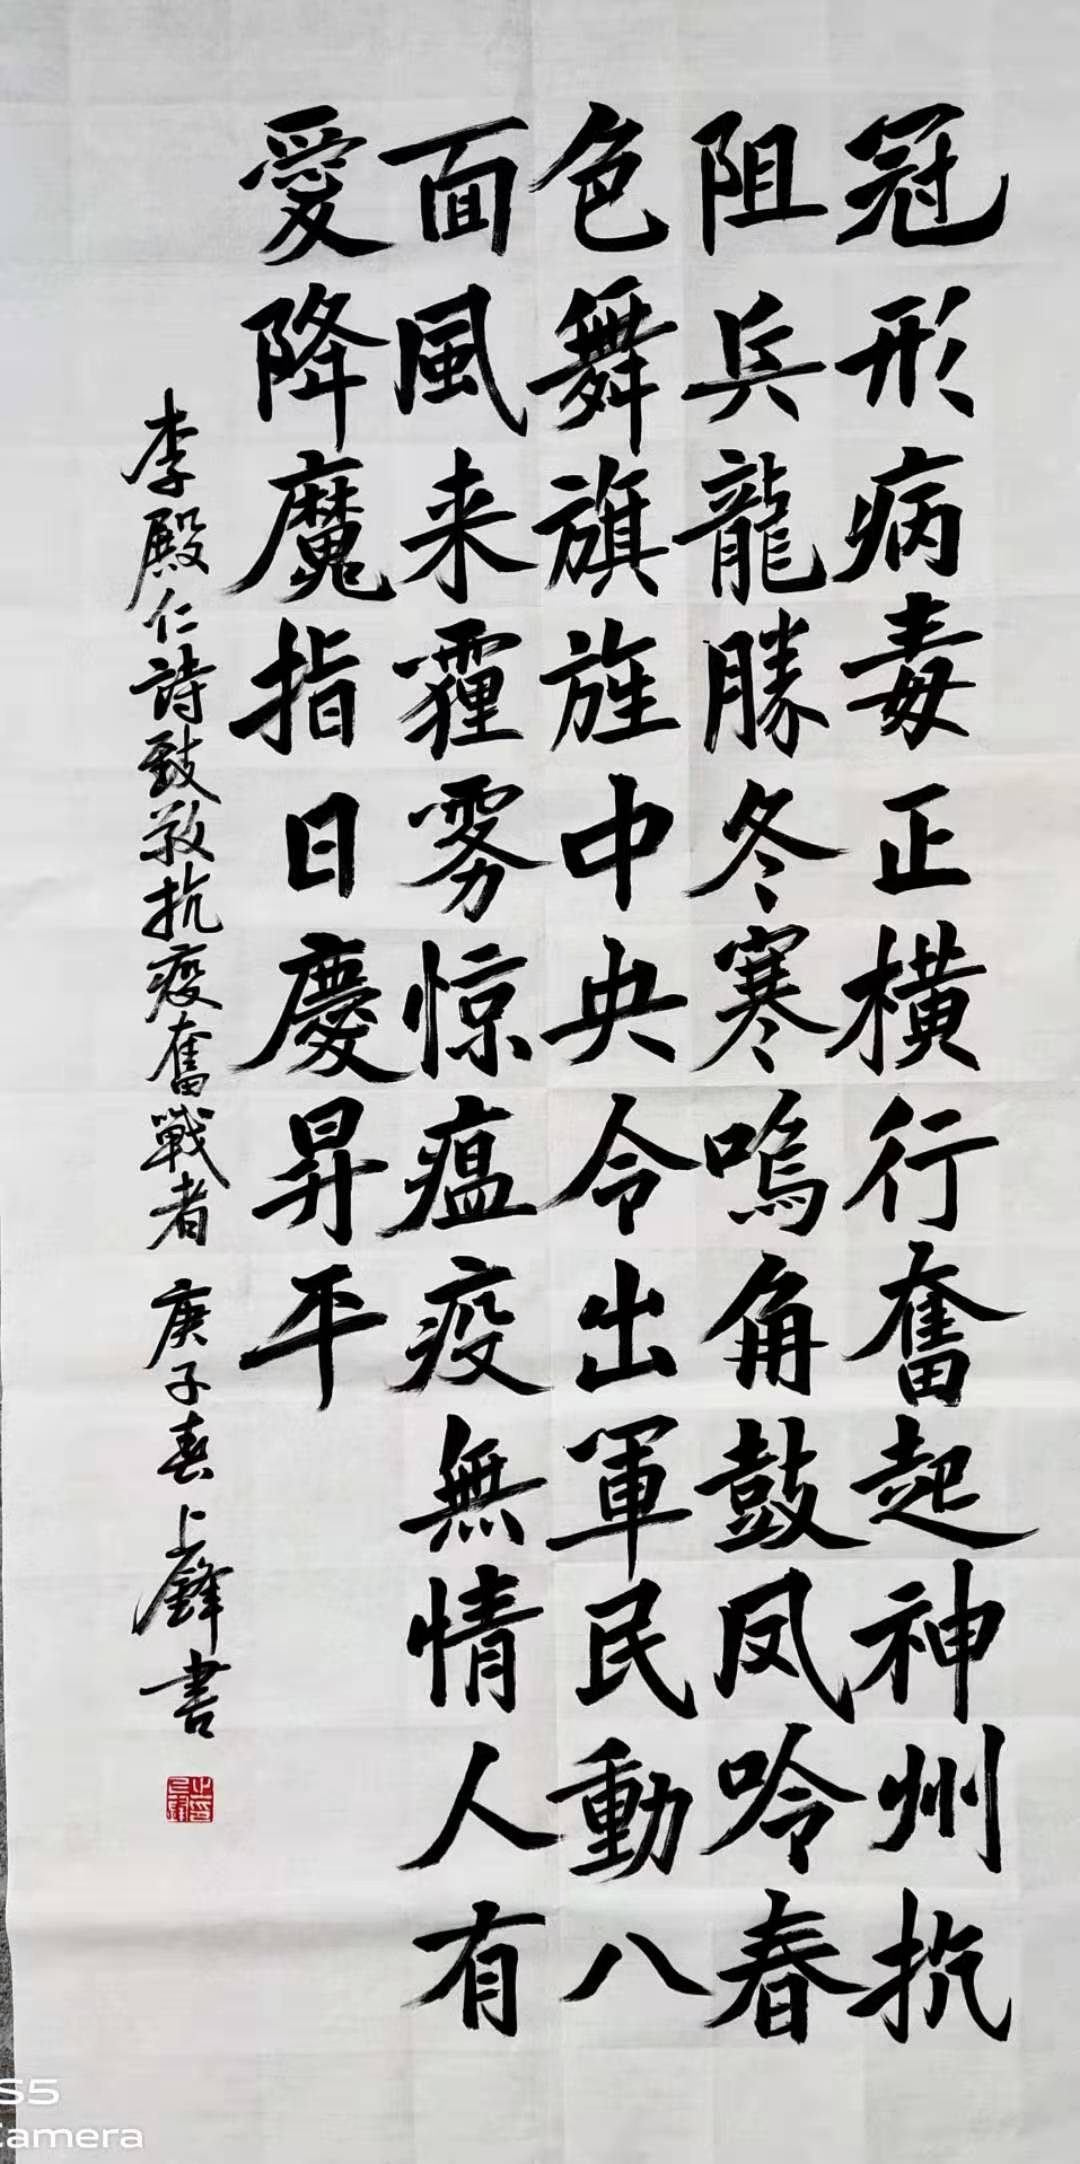 冠形病毒正橫行奮起神州抗
阻兵龍勝冬寒嗚角鼓凤吟春
色舞旗旌中央令出軍民動八
面風来霾雾惊瘟疫無情人有
愛降魔指日慶昇平
李殿仁詩致敬抗疫奮戰者 庚子春上鋒書
S5
Camera